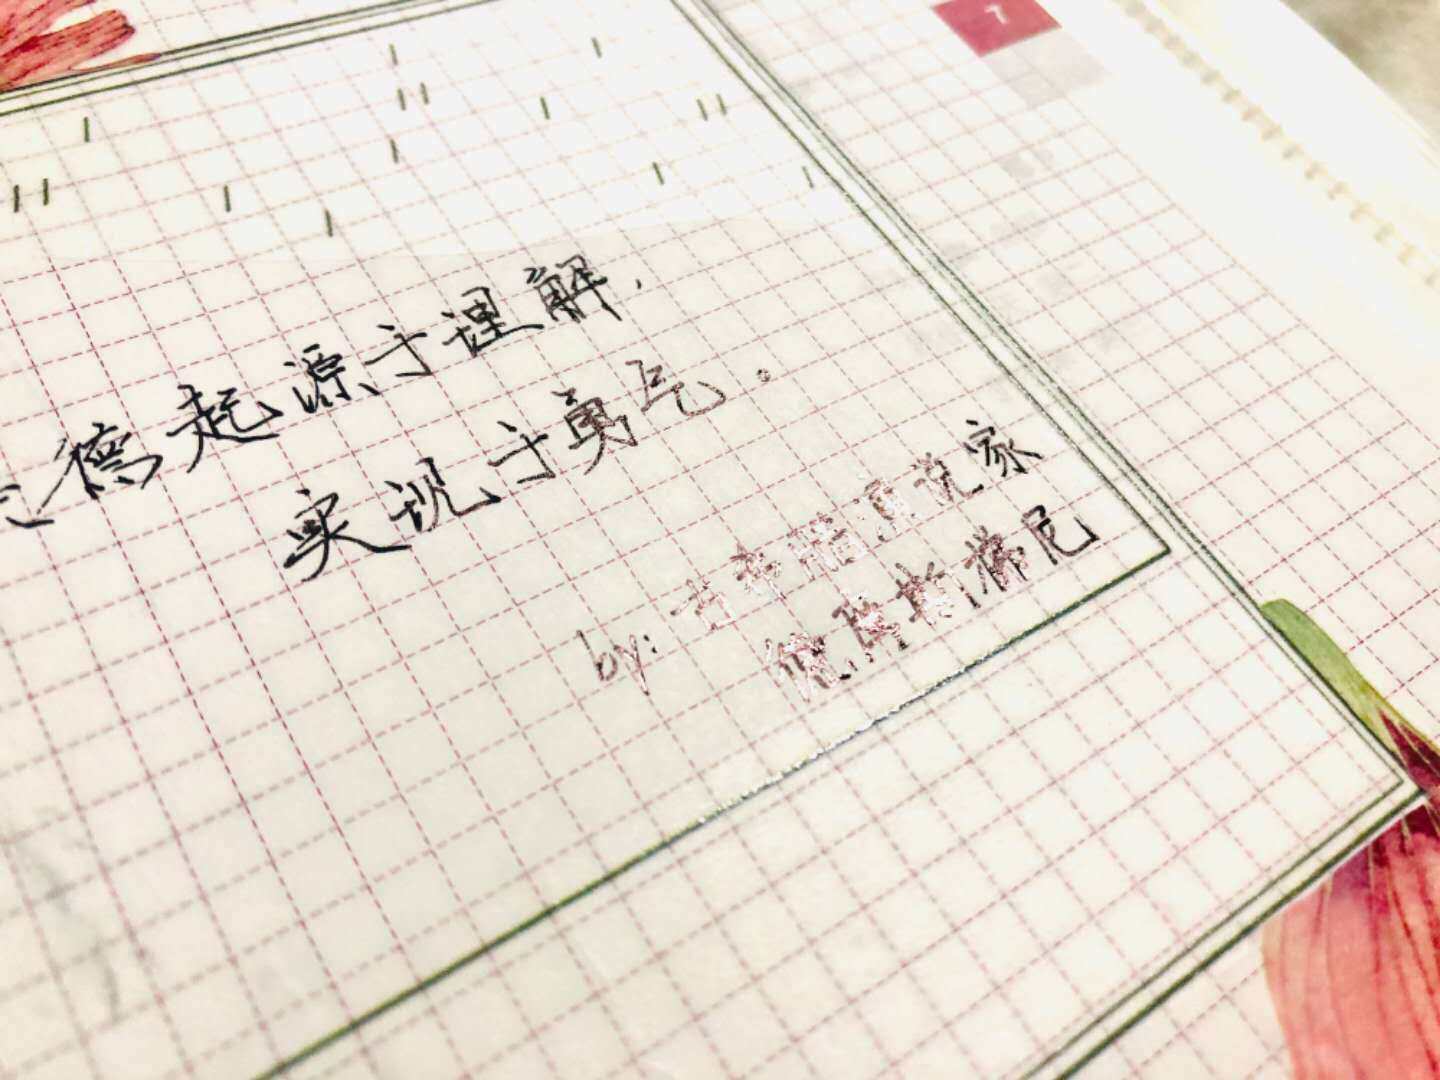 7
德起源于理解.
实现于勇气.
by: 古希腊演说家
德摩斯梯尼